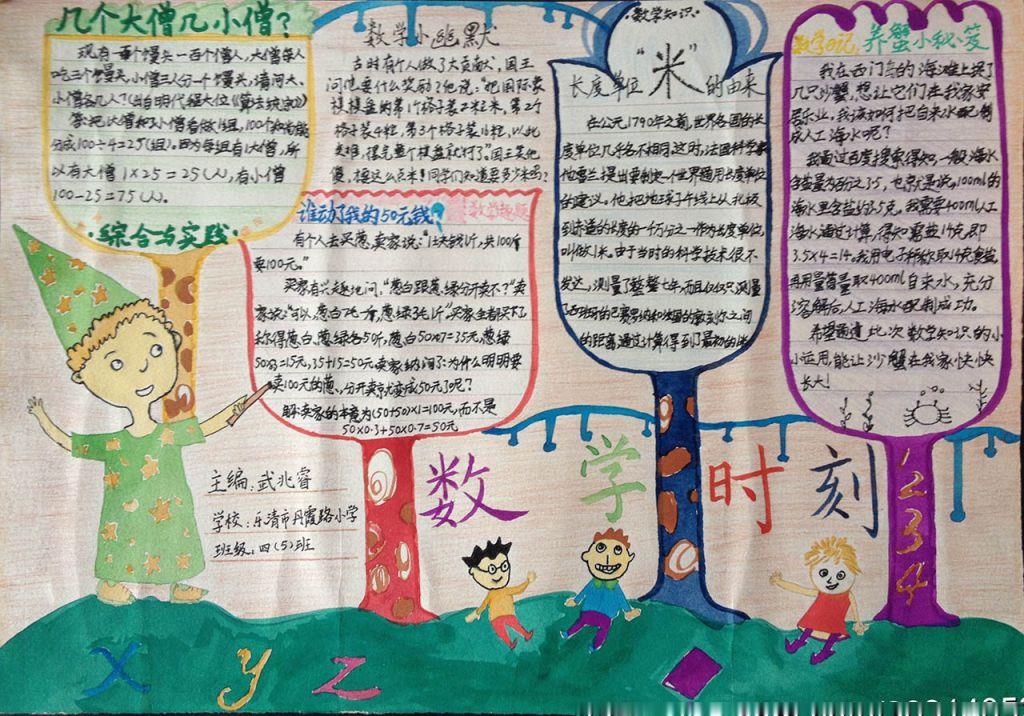 几个大僧几小僧?
现有一百个馒头一百个僧人,大僧每人
吃三个馒头,小僧三人分一个馒头,请问大、
小僧各几人?(出自明代程大位《算法统宗》)
分成100÷4=25(组),因为每组有1大僧,所
以有大僧 1×25=25(人),有小僧
100-25=75(人)。
·综合与实践·
数学小幽默
古时有个人做了大贡献,国王
问他要什么奖励?他说:"把国际象
棋棋盘的第1个格子装2粒米,第2个
格子装4粒,第3个格子装16粒,以此
类推,
谁动了我的50元钱?
数学趣题
有个人去买葱,卖家说:"1块钱1斤,共100斤
要100元。"
买家有兴趣地问,"葱白跟葱绿分开卖不?"卖
家说:"可以,葱白7毛1斤,葱绿3毛1斤"
称得葱白、葱绿各50斤,葱白50×0.7=35元,葱绿
50×0.3=15元,35+15=50元,卖家纳闷了:为什么明明要
卖100元的葱、分开卖就变成50元了呢?
解:卖家的本意为(50+50)×1=100元,而不是
50×0.3+50×0.7=50元
·数学知识·
长度单位"米"的由来
在公元1790年之前,世界各国的长
度单位几乎各不相同,这时,法国科学家
他雪兰提出要制定一个世界通用长度单位
的建议。他把地球子午线上从北极
到赤道的长度的一千万分之一作为长度单位,
叫做1米。由于当时的科学技术很不
发达,测量了整整七年,而且仅仅只测量
的距离,通过计算得到了最初的米
数学日记 养蟹小秘笈
我在西门岛的海滩上捉了
几只沙蟹,想让它们在我家安
居乐业,我该如何把自来水配制
成人工海水呢?
我通过百度搜索得知,一般海水
含盐量为百分之3.5,也就是说,100ml的
海水里含盐约3.5克,我需要400ml人工
海水通过计算,得知需盐14克,即
3.5×4=14。我用电子秤称取14克食盐,
再用量筒量取400ml自来水,充分
溶解后,人工海水配制成功。
希望通过此次数学知识的小
小运用,能让沙蟹在我家快快
长大!
主编:武兆睿
学校:乐清市丹霞路小学
班级:四(5)班
数学时刻
1234
x y z